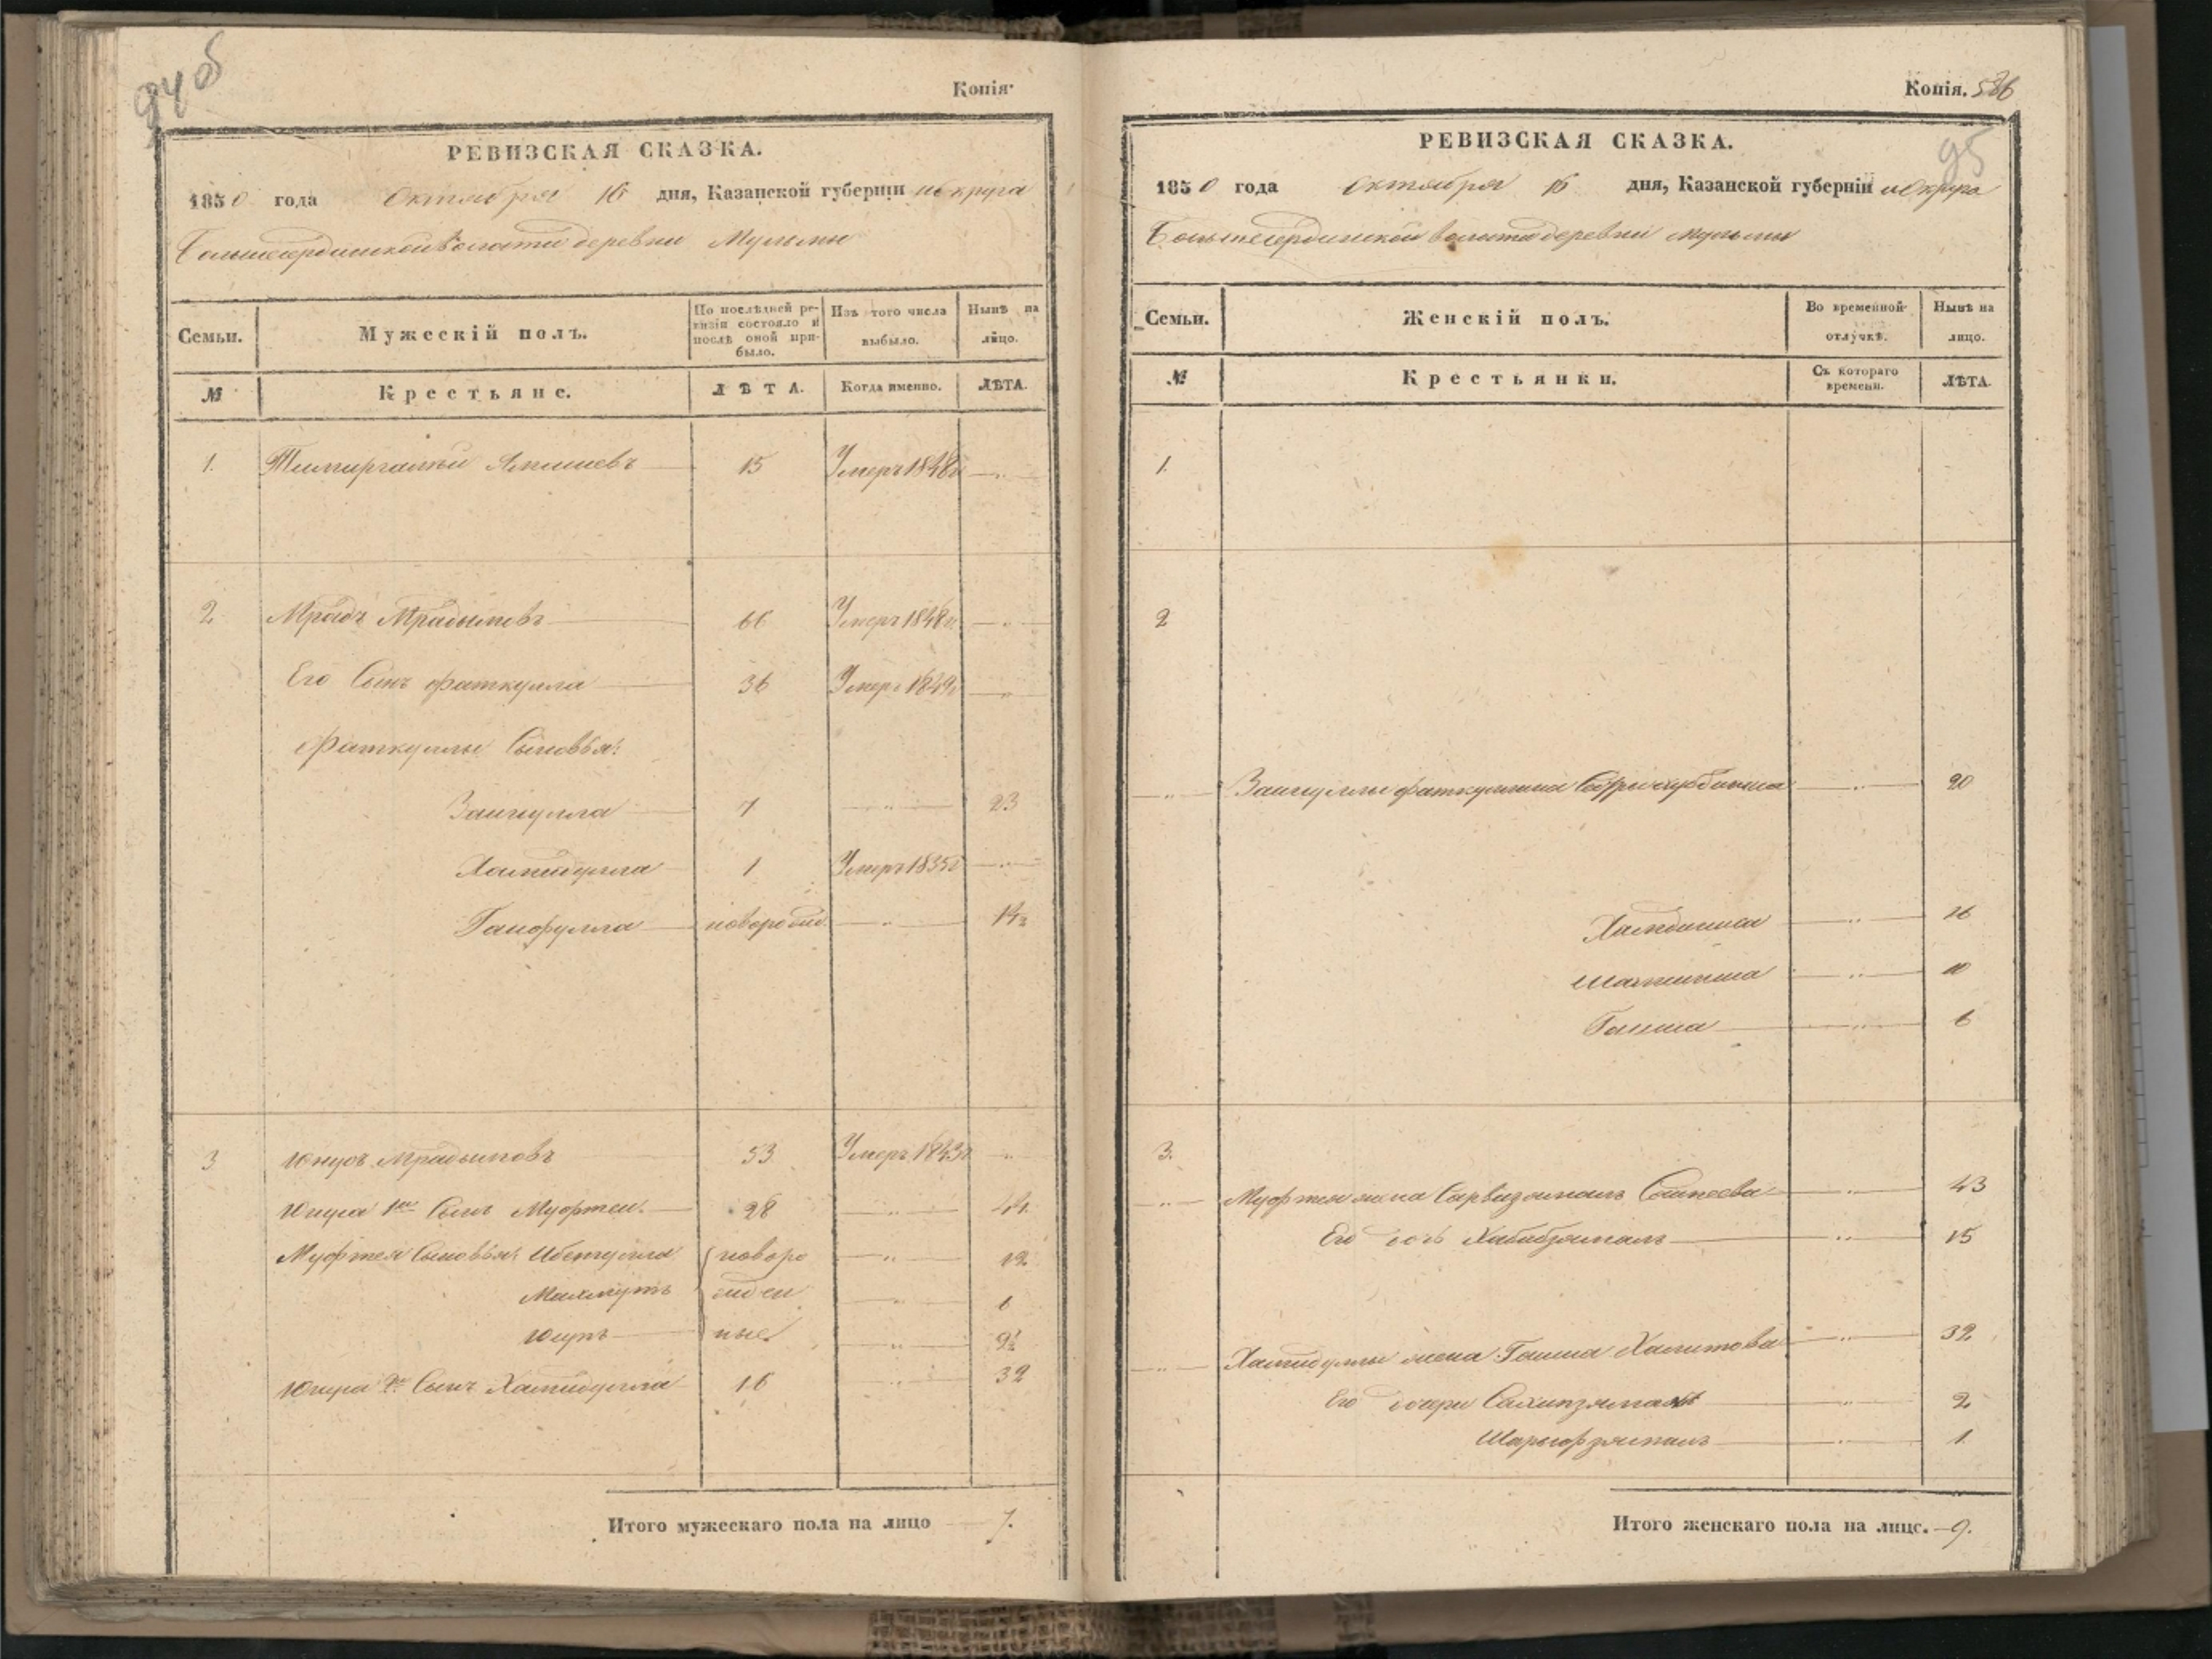 94 об
Копія
РЕВИЗСКАЯ СКАЗКА.
1850 года Октября 16 дня, Казанской губерніи и округа
Большесердинской волости деревни Мульмы
Семьи.
Мужескій полъ.
По послѣдней ревизіи состояло и послѣ оной прибыло.
Изъ того числа выбыло.
Нынѣ на лицо.
№
Крестьяне.
ЛѢТА.
Когда именно.
ЛѢТА.
1. Темиргалей 15 Умеръ 1848г
2 Мрадъ Мрадымовъ 66 Умеръ 1848г.
Его Сынъ Фаткулла 36 Умеръ 1849г
Фаткуллы Сыновья:
Заигулла 7 23
Хамидулла 1 Умеръ 1835г
Ганофулла новорожд. 14½
3 Юнусъ Мрадымовъ 53 Умеръ 1843г
1й Сынъ Муфтей 28 44
Муфтея Сыновья: Ибетулла новоро 12
Махмутъ жден 6
ные 9½
2й Сынъ Хамидулла 16 32
Итого мужескаго пола на лицо 7.
Копія. 526
95
РЕВИЗСКАЯ СКАЗКА.
1850 года Октября 16 дня, Казанской губерніи и Округа
Большесердинской волости деревни Мульмы
Семьи.
Женскій полъ.
Во временной отлучкѣ.
Нынѣ на лицо.
№
Крестьянки.
Съ котораго времени.
ЛѢТА.
1.
2
Заигуллы 20
16
10
Гаиша 6
3.
Муфтея жена Сарвизямалъ 43
Его дочь Хабибзямалъ 15
Хамидуллы жена Гаиша Халитова 32
Его дочери Сахипзямалъ 2
Шарыфзямалъ 1
Итого женскаго пола на лицо. 9.